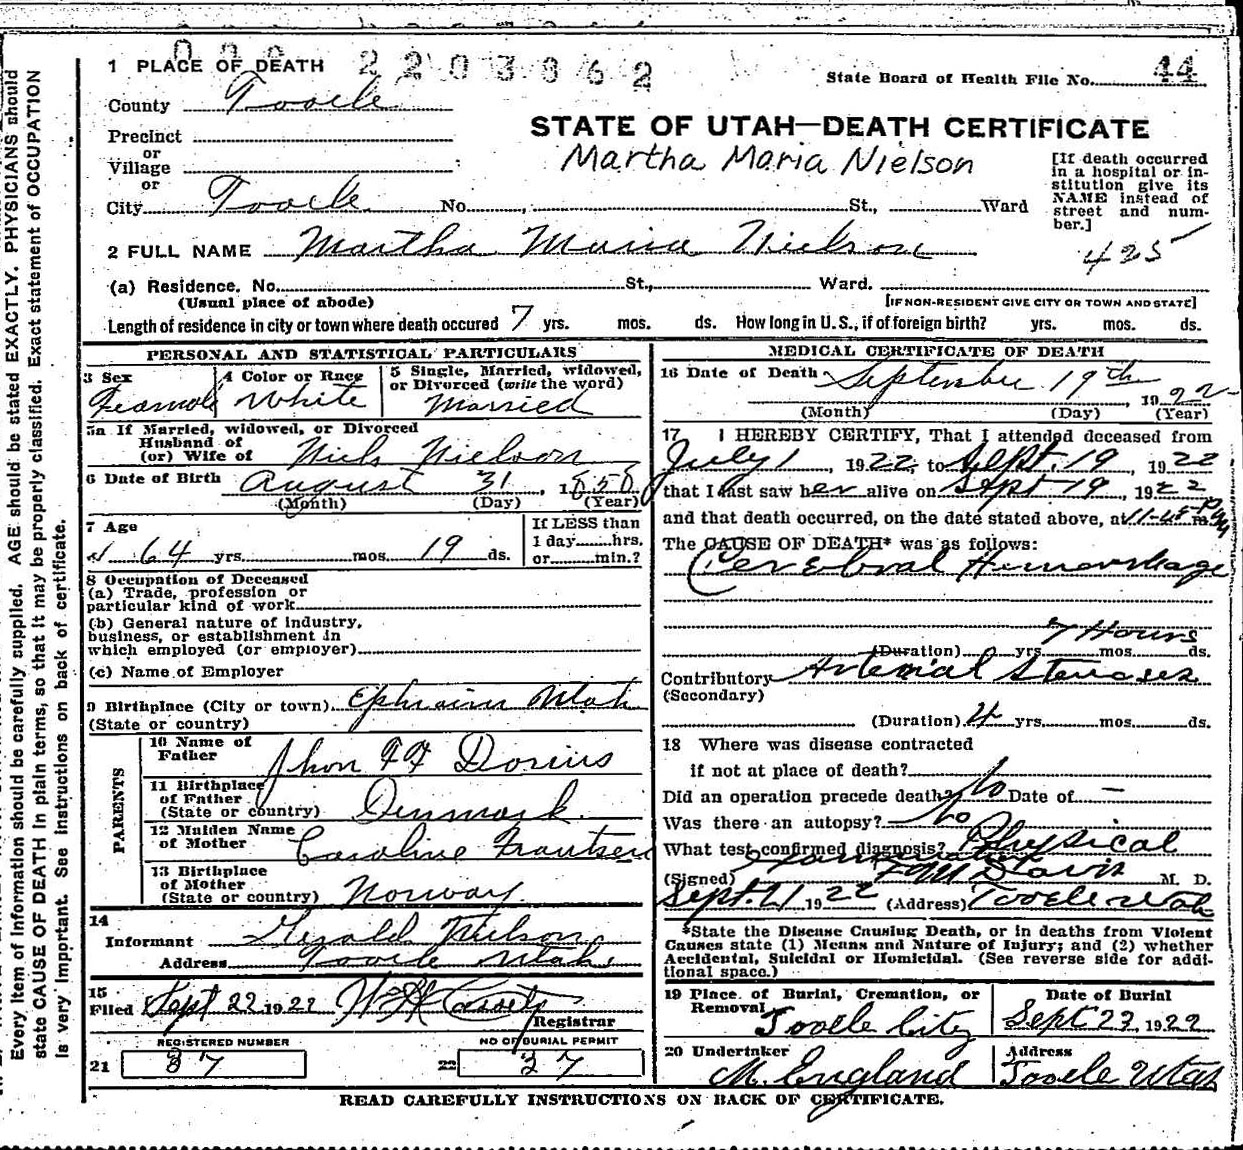 1 PLACE OF DEATH 2203862
State Board of Health File No. 44
County Tooele
STATE OF UTAH—DEATH CERTIFICATE
Precinct
or
Village
or
Martha Maria Nielson
[If death occurred in a hospital or in-
stitution give its
NAME instead of
street and num-
ber.]
City Tooele No. , St., Ward
2 FULL NAME Martha Maria Nielson
425
(a) Residence. No. St., Ward.
(Usual place of abode) [IF NON-RESIDENT GIVE CITY OR TOWN AND STATE]
Length of residence in city or town where death occured 7 yrs. mos. ds. How long in U.S., if of foreign birth? yrs. mos. ds.
PERSONAL AND STATISTICAL PARTICULARS
3 Sex Feamole
4 Color or Race White
5 Single, Married, widowed,
or Divorced (write the word)
Married
5a If Married, widowed, or Divorced
Husband of
(or) Wife of Niels Nielson
6 Date of Birth August 31, 1858
(Month) (Day) (Year)
7 Age
64 yrs. mos. 19 ds.
If LESS than
1 day hrs.
or min.?
8 Occupation of Deceased
(a) Trade, profession or
particular kind of work
(b) General nature of industry,
business, or establishment in
which employed (or employer)
(c) Name of Employer
9 Birthplace (City or town) Ephraim Utah
(State or country)
PARENTS
10 Name of
Father Jhon F F Dorius
11 Birthplace
of Father
(State or country) Denmark
12 Maiden Name
of Mother Caroline Frantsen
13 Birthplace
of Mother
(State or country) Norway
14
Informant Gerald Nielson
Address Tooele Utah
15
Filed Sept 22 1922
Registrar
REGISTERED NUMBER
21 37
NO OF BURIAL PERMIT
22 37
MEDICAL CERTIFICATE OF DEATH
16 Date of Death September 19th, 1922
(Month) (Day) (Year)
17 I HEREBY CERTIFY, That I attended deceased from
July 1, 1922 to Sept. 19, 1922
that I last saw her alive on Sept 19, 1922
and that death occurred, on the date stated above, at 11-45 P m
The CAUSE OF DEATH* was as follows:
Cerebral Hemorrhage
7 Hours
(Duration) yrs. mos. ds.
Contributory Arterial Stenoses
(Secondary)
(Duration) 4 yrs. mos. ds.
18 Where was disease contracted
if not at place of death?
Did an operation precede death? No Date of —
Was there an autopsy? No
What test confirmed diagnosis? Physical
(Signed) Davis M. D.
Sept. 21, 1922 (Address) Tooele Utah
*State the Disease Causing Death, or in deaths from Violent
Causes state (1) Means and Nature of Injury; and (2) whether
Accidental, Suicidal or Homicidal. (See reverse side for addi-
tional space.)
19 Place of Burial, Cremation, or
Removal Tooele City
Date of Burial
Sept 23, 1922
20 Undertaker
M. England
Address
Tooele Utah
READ CAREFULLY INSTRUCTIONS ON BACK OF CERTIFICATE.
Every item of Information should be carefully supplied. AGE should be stated EXACTLY. PHYSICIANS should
state CAUSE OF DEATH in plain terms, so that it may be properly classified. Exact statement of OCCUPATION
is very important. See instructions on back of certificate.